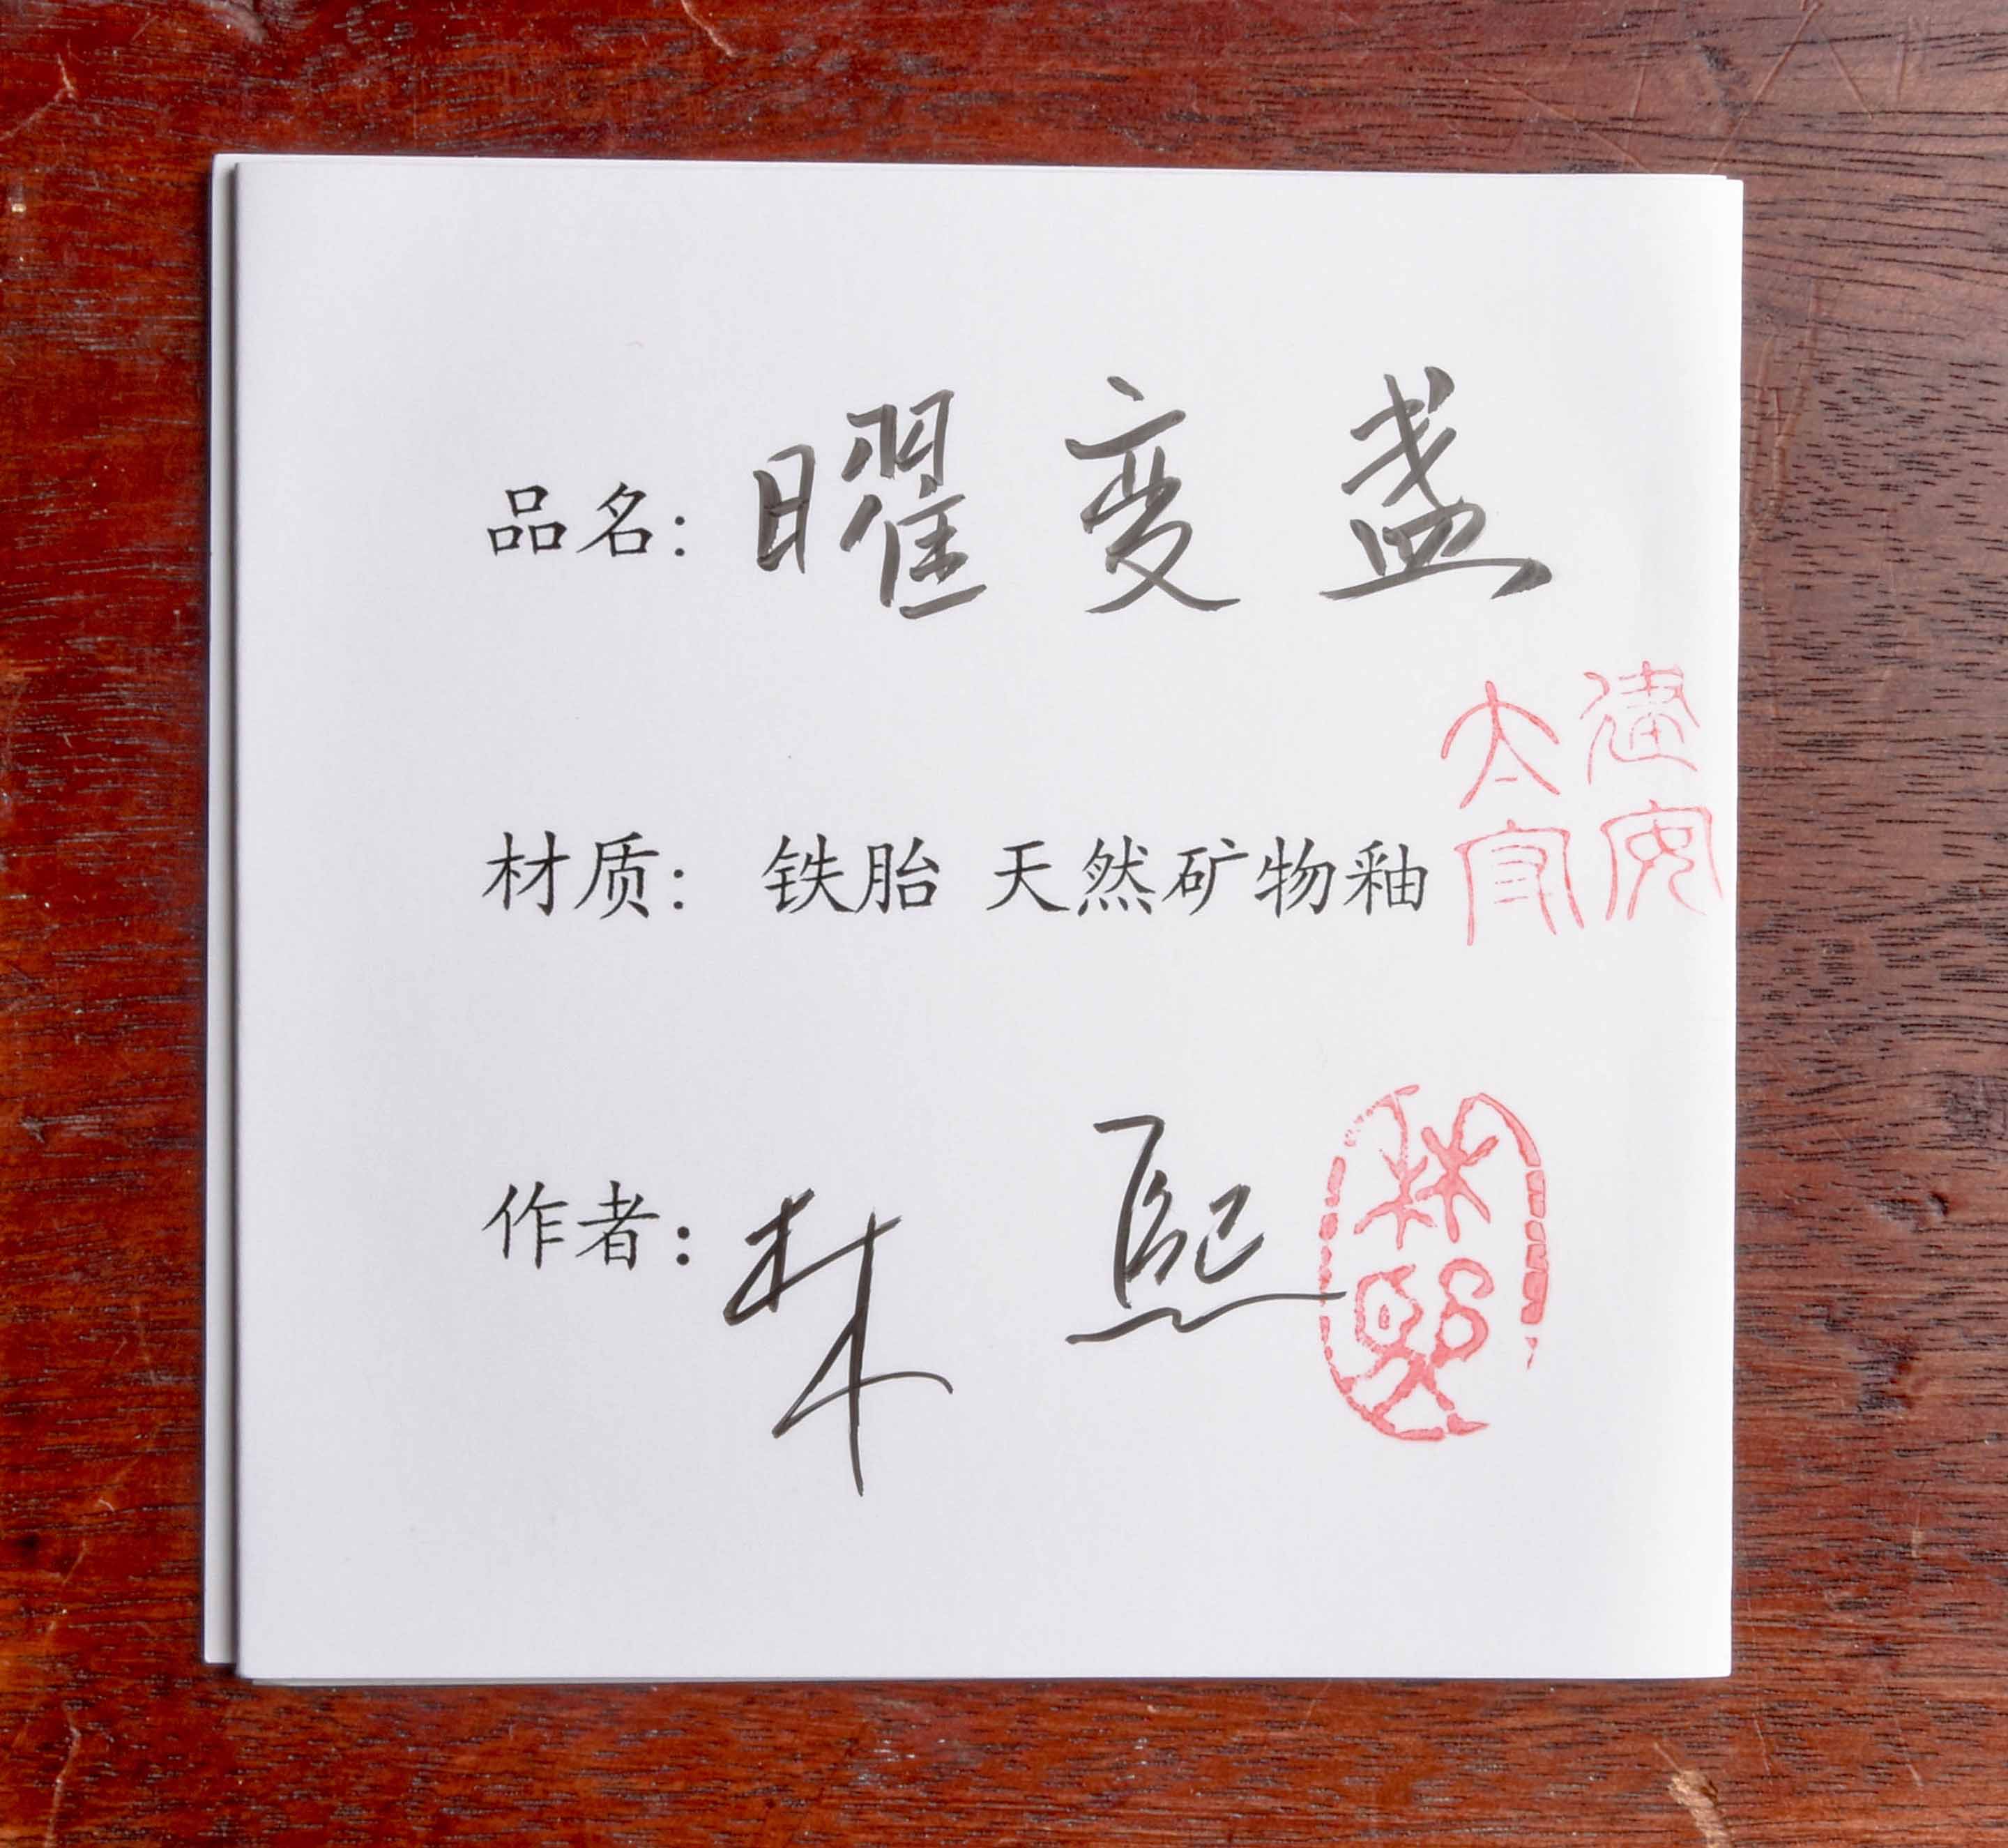 品名：曜变盏
材质：铁胎 天然矿物釉
作者：林 熙
建安
大家
林熙